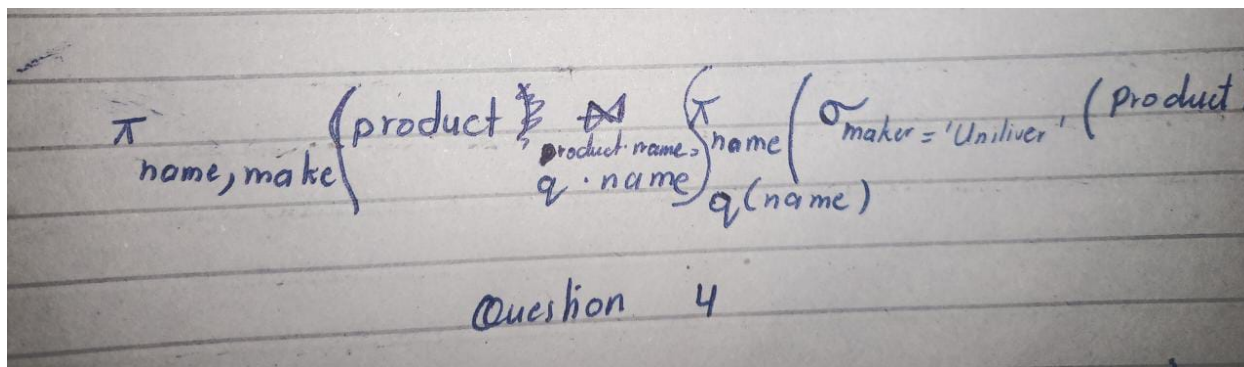 π name, make (product ⋈ product.name = q.name ρ q(name) (π name (σ maker = 'Uniliver' (Product
Question 4